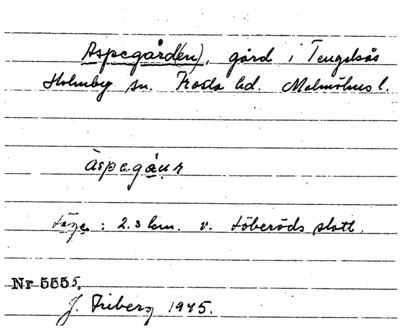 Aspegård(en), gård i Tengelsås
Holmby sn. Frosta hd. Malmöhus l.
aspegáun
Läge: 2.3 km. v. Löberöds slott.
Nr 5555.
J. Friberg 1945.